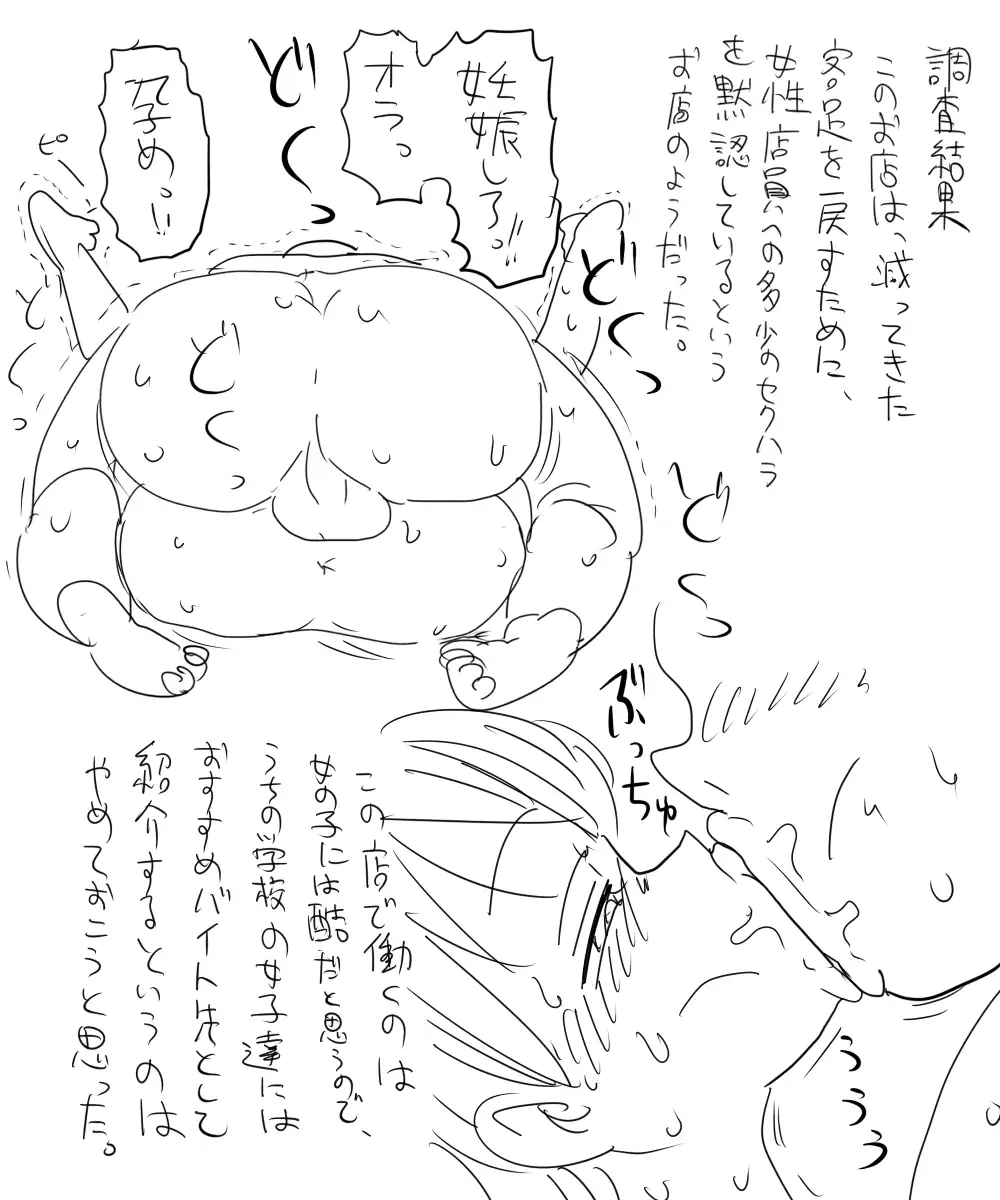 調査結果
このお店は、減ってきた
客足を戻すために、
女性店員への多少のセクハラ
を黙認しているという
お店のようだった。
妊娠しろっ!!
オラっ
孕めっ!!
ど
く
っ
ピーン
どくっ
どくっ
どくっ
どくっ
ぶっちゅ
ううう
この店で働くのは
女の子には酷だと思うので、
うちの学校の女子達には
おすすめバイト先として
紹介するというのは
やめておこうと思った。